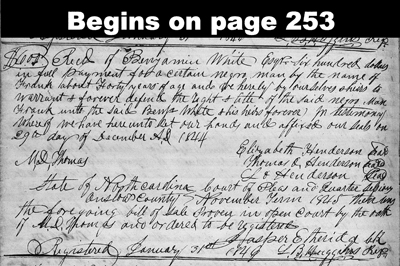 Begins on page 253
Registered January 31 1846
Recd of Benjamin White Esqr six hundred dollars
in full payment for a certain negro man by the name
of Frank about forty years of age and we hereby by ourselves & heirs to
warrant & forever defend the right & title of the said negro man
Frank unto the said Benj White his heirs forever In testimony
whereof we have hereunto set our hands and affixed our seals on
29th day of December AD 1844
Elizabeth Henderson seal
M.D. Thomas
Thomas O. Henderson seal
L. Henderson seal
State of North Carolina Court of Pleas and Quarter Sessions
Onslow County November Term 1845 There was
the foregoing bill of sale proven in open court by the oath
of M.D. Thomas and ordered to be registered
Jasper Etherid g clk
Registered January 31st 1846